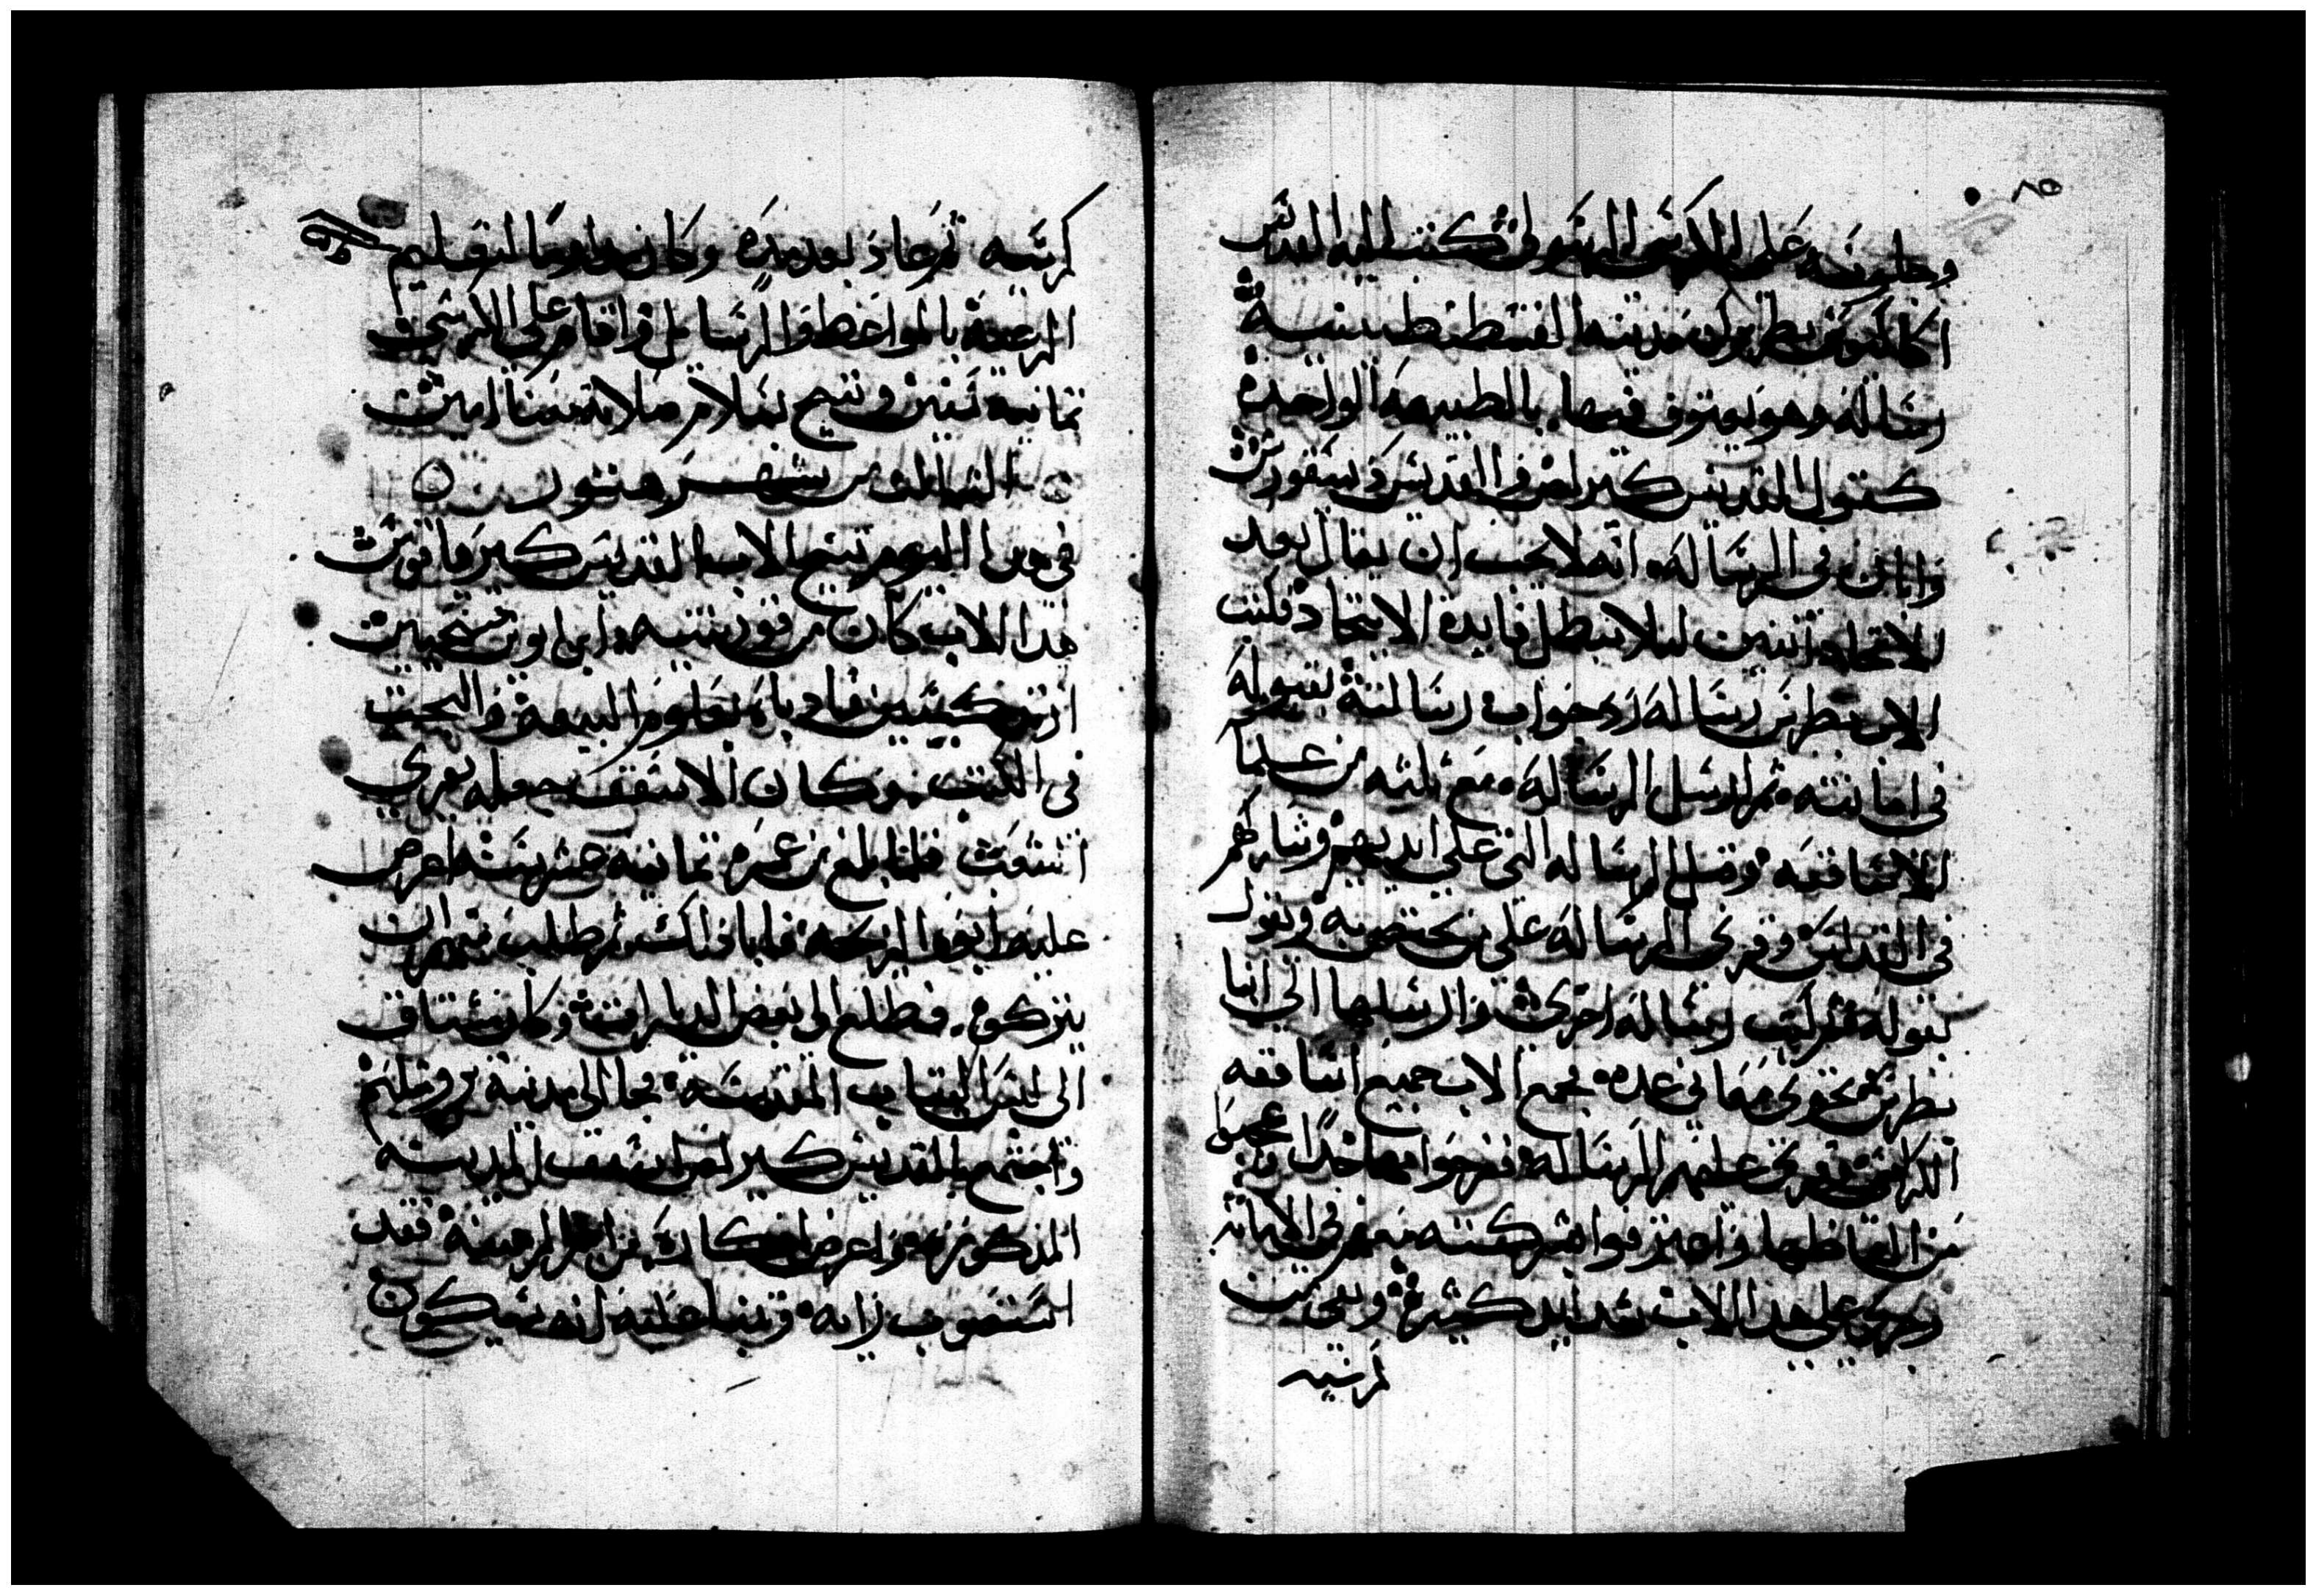 ٨٥
وجلوسه على الكرسي الرسولي كتب اليه القديس
اكاكيوس بطريرك مدينة القسطنطينيه
رساله وهو يعترف فيها بالطبيعه الواحده
كقول القديس كيرلص والقديس ديسقورس
وابان في الرساله انه لا يجب ان يقال بعد
الاتحاد اثنين ليلا تبطل فايدة الاتحاد فكتب
الاب بطرس رساله رد جواب رسالته بقبوله
في امانته ثم ارسل الرساله مع ثلثه من علما
الاساقفه وقبل الرساله التي على ايديهم وشاركهم
في القداس وقري الرساله على من يختص به وبقول
بقوله ثم كتب رساله اخري وارسلها الي انبا
بطرس تحتوي معاني عده فجمع الاب جميع اساقفه
الكرسي وقري عليهم الرساله ففرحوا بها جدًا وتعجبوا
من الفاظها واعترفوا بشركته معهم في الامانه
وجري علي هذا الاب شدايد كثيرة ونفي من
كرسيه
كرسيه ثم عاد بعد مده وكان مداومًا لتعليم
الرعية بالمواعظ والرسايل واقام على الكرسي
ثمانيه سنين وتنيح بسلام صلاته معنا امين
الثالث من شهر هتور
في هدا اليوم تنيح الاب القديس كيرياقوس
هدا الاب كان من قورنتيه ابن ابوين مسيحيين
ارتدكسيين فادباه بعلوم البيعة والبحث
في الكتب وكان الاسقف جعله يقري
انسقس فلما بلغ من عمره تمانيه عشر سنه اعرض
عليه ابوه الزيجه فابا ذلك ثم طلب منهم ان
يتركوه فطلع الى بعض الديارات وكان يشتاق
الى البقاع المقدسه فجا الى مدينة يروشليم
واجتمع بالقديس كيرلص اسقف المدينه
المذكوره واعرض افكاره من امر الرهبنة فقد
استصوب رايه وتنبا عليه انه سيكون